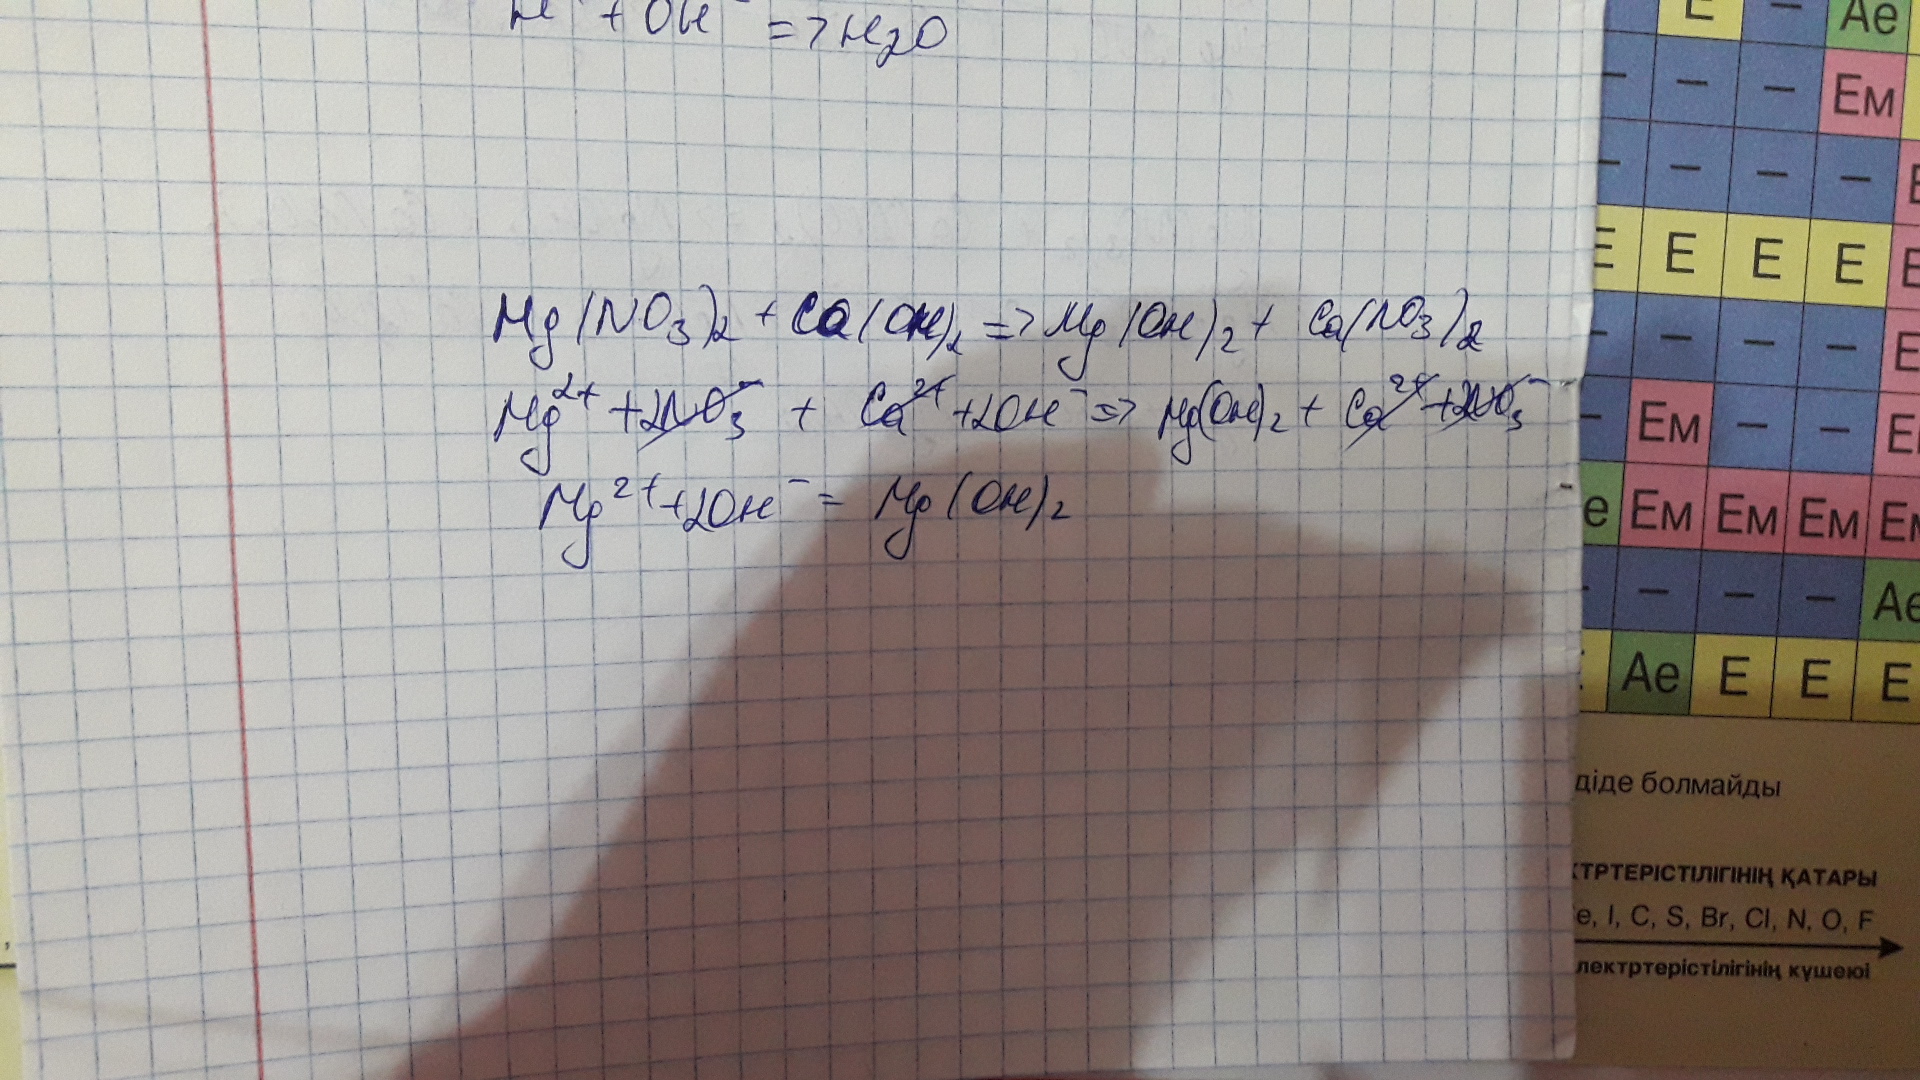 H + OH⁻ => H₂O
Mg(NO₃)₂ + Ca(OH)₂ => Mg(OH)₂ + Ca(NO₃)₂
Mg²⁺ + 2NO₃⁻ + Ca²⁺ + 2OH⁻ => Mg(OH)₂ + Ca²⁺ + 2NO₃⁻
Mg²⁺ + 2OH⁻ = Mg(OH)₂
Е – Ае
– – – Ем
– – – –
Е Е Е Е Е
– – – – Е
– Ем – –
е Ем Ем Ем Ем
– – – – Ае
Ае Е Е Е
діде болмайды
КТРТЕРІСТІЛІГІНІҢ ҚАТАРЫ
e, I, C, S, Br, Cl, N, O, F
лектртерістілігінің күшеюі